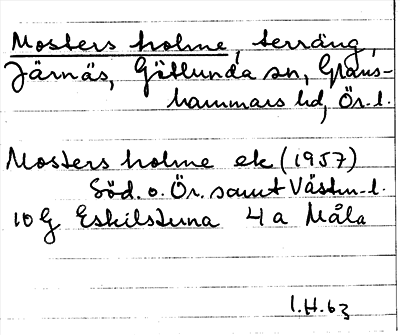 Mosters holme, terräng,
Järnäs, Götlunda sn, Glans-
hammars hd, Ör. l.
Mosters holme ek (1957)
Söd. o. Ör. samt Västm-l.
10 G Eskilstuna 4 a Måla
I.H. 63